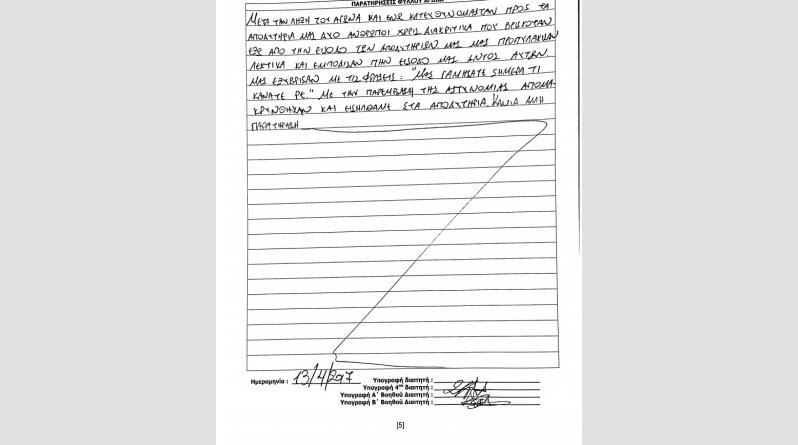 ΠΑΡΑΤΗΡΗΣΕΙΣ ΦΥΛΛΟΥ ΑΓΩΝΑ
ΜΕΤΑ ΤΗΝ ΛΗΞΗ ΤΟΥ ΑΓΩΝΑ ΚΑΙ ΕΝΩ ΚΑΤΕΥΘΥΝΟΜΑΣΤΑΝ ΠΡΟΣ ΤΑ
ΑΠΟΔΥΤΗΡΙΑ ΜΑΣ ΔΥΟ ΑΝΘΡΩΠΟΙ ΧΩΡΙΣ ΔΙΑΚΡΙΤΙΚΑ ΠΟΥ ΒΡΙΣΚΟΤΑΝ
ΕΞΩ ΑΠΟ ΤΗΝ ΕΙΣΟΔΟ ΤΩΝ ΑΠΟΔΥΤΗΡΙΩΝ ΜΑΣ ΜΑΣ ΠΡΟΠΥΛΑΚΙΣΑΝ
ΛΕΚΤΙΚΑ ΚΑΙ ΕΜΠΟΔΙΣΑΝ ΤΗΝ ΕΙΣΟΔΟ ΜΑΣ ΕΝΤΟΣ ΑΥΤΩΝ.
ΜΑΣ ΕΞΥΒΡΙΣΑΝ ΜΕ ΤΙΣ ΦΡΑΣΕΙΣ: "ΜΑΣ ΓΑΜΗΣΑΤΕ ΣΗΜΕΡΑ ΤΙ
ΚΑΝΑΤΕ ΡΕ." ΜΕ ΤΗΝ ΠΑΡΕΜΒΑΣΗ ΤΗΣ ΑΣΤΥΝΟΜΙΑΣ ΑΠΟΜΑ-
ΚΡΥΝΘΗΚΑΝ ΚΑΙ ΕΙΣΗΛΘΑΜΕ ΣΤΑ ΑΠΟΔΥΤΗΡΙΑ. ΚΑΜΙΑ ΑΛΛΗ
ΠΑΡΑΤΗΡΗΣΗ
Ημερομηνία : 13/4/297 Υπογραφή διαιτητή :
Υπογραφή 4ου διαιτητή :
Υπογραφή Α΄ Βοηθού Διαιτητή :
Υπογραφή Β΄ Βοηθού Διαιτητή :
[5]